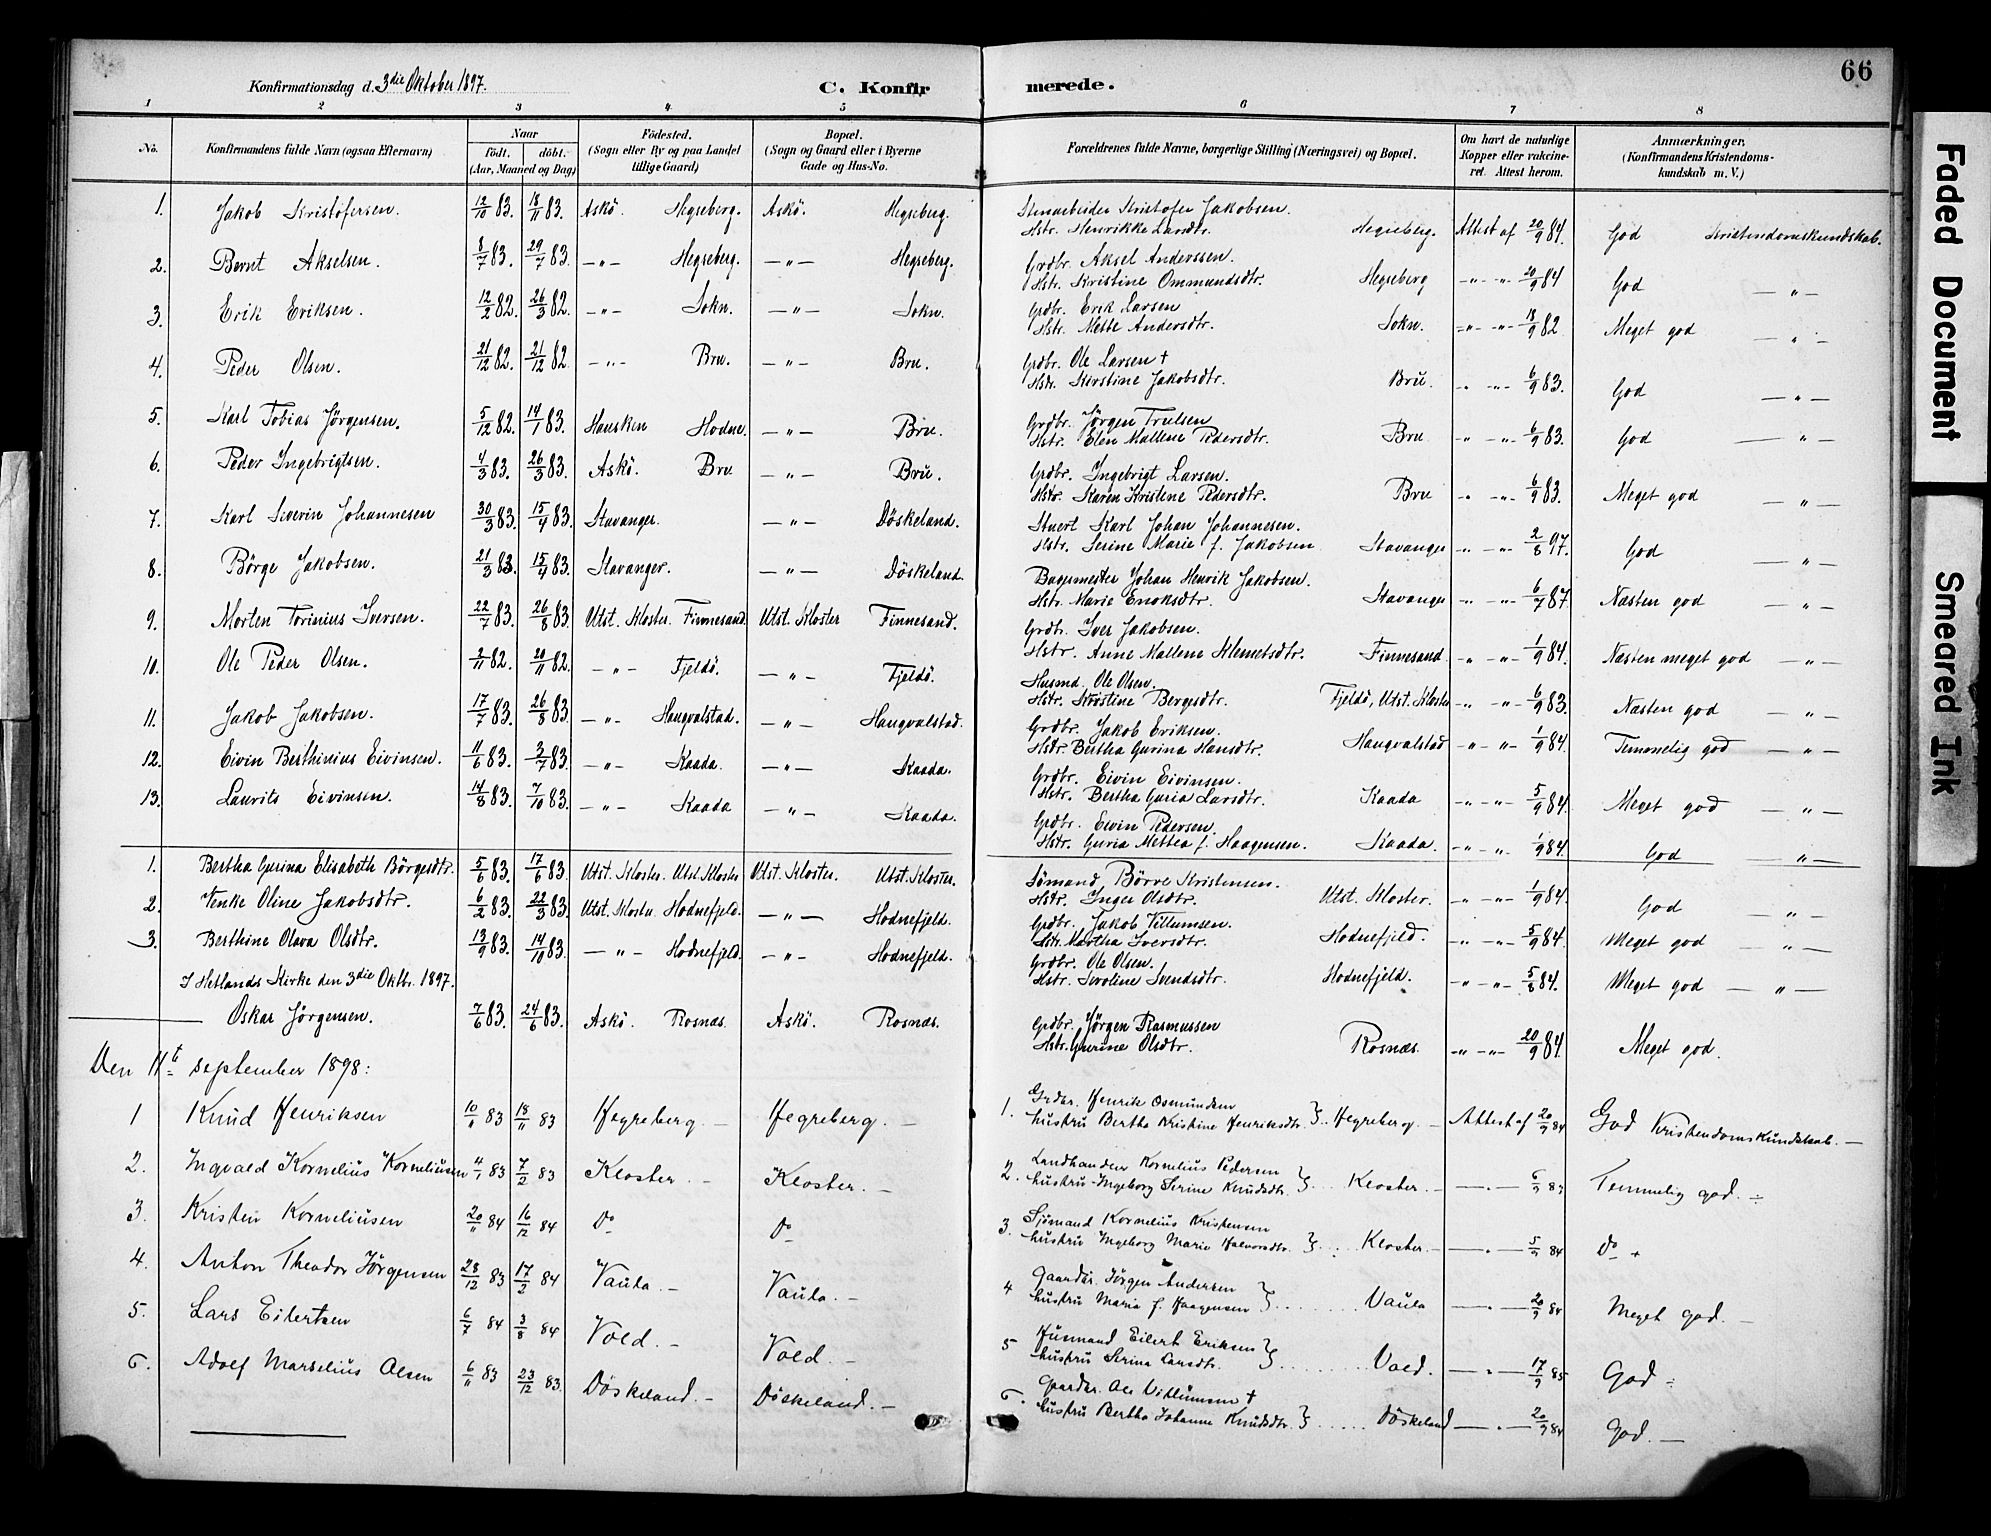 66
Konfirmationsdag d. 3die Oktober 1897.
C. Konfirmerede.
1 2 3 4 5 6 7 8
No.
Konfirmandens fulde Navn (ogsaa Efternavn)
Naar
födt. döbt.
(Aar, Maaned og Dag)
Födested.
(Sogn eller By og paa Landet
tillige Gaard)
Bopæl.
(Sogn og Gaard eller i Byerne
Gade og Hus-No.
Forældrenes fulde Navne, borgerlige Stilling (Næringsvei) og Bopæl.
Om havt de naturlige
Kopper eller vakcine-
ret. Attest herom.
Anmærkninger.
(Konfirmandens Kristendoms-
kundskab m. V.)
1. Jakob Kristofersen. 12/10 83. 18/11 83. Askö. Hegreberg. Askö. Hegreberg. Stenarbeider Kristofer Jakobsen.
Hstr. Henrikke Larsdtr. Hegreberg. Attest af 20/9 84. God Kristendomskundskab.
2. Bernt Akselsen. 8/7 83. 29/7 83. —"— Hegreberg. —"— Hegreberg. Grdbr. Aksel Anderssen.
Hstr. Kristine Ommundsdtr. Hegreberg —"— —"— 20/9 84 God —"—
3. Erik Eriksen. 12/2 82. 26/3 82. —"— Sokn. —"— Sokn. Grdbr. Erik Larsen
Hstr. Mette Andersdtr. Sokn. —"— —"— 18/9 82 Meget god —"—
4. Peder Olsen. 21/12 82. 21/12 82 —"— Bru. —"— Bru. Grdbr. Ole Larsen †
Hstr. Kirstine Jakobsdtr. Bru. —"— —"— 6/9 83. God —"—
5. Karl Tobias Jörgensen. 5/12 82. 14/1 83. Hausken Hodne. —"— Bru. Grdbr. Jörgen Trulsen
Hstr. Elen Mallene Pedersdtr. Bru —"— —"— 6/9 83. God —"—
6. Peder Ingebrigtsen. 4/3 83. 26/3 83. Askö. Bru —"— Bru. Grdbr. Ingebrigt Larsen.
Hstr. Karen Kristine Pedersdtr. Bru —"— —"— 6/9 83. Meget god —"—
7. Karl Severin Johannesen 30/3 83. 15/4 83. Stavanger. —"— Döskeland. Stuert Karl Johan Johannesen.
Hstr. Serine Marie f. Jakobsen Stavanger —"— —"— 2/8 97. God —"—
8. Börge Jakobsen. 21/3 83. 15/4 83. Stavanger. —"— Döskeland. Bagermester Johan Henrik Jakobsen.
Hstr. Marie Enoksdtr. Stavanger —"— —"— 6/7 87. Næsten god —"—
9. Morten Torinius Iversen. 22/7 83. 26/8 83. Utst. Kloster. Finnesand. Utst. Kloster Finnesand. Grdbr. Iver Jakobsen.
Hstr. Anne Mallene Klemetsdtr. Finnesand —"— —"— 1/9 84. Næsten meget god —"—
10. Ole Peder Olsen. 2/11 82. 20/11 82. —"— Fjeldö. —"— Fjeldö. Husmd. Ole Olsen.
Hstr. Kristine Bergesdtr. Fjeldö, Utst. Kloster —"— —"— 6/9 83. Næsten god —"—
11. Jakob Jakobsen. 17/7 83. 26/8 83. —"— Haugvalstad. —"— Haugvalstad. Grdbr. Jakob Eriksen.
Hstr. Bertha Gurina Hansdtr. Haugvalstad —"— —"— 1/9 84. Temmelig god —"—
12. Eivin Berthinius Eivinsen. 11/6 83. 3/7 83. —"— Kaada. —"— Kaada. Grdbr. Eivin Eivinsen.
Hstr. Bertha Guria Larsdtr. Kaada —"— —"— 5/9 84. Meget god —"—
13. Laurits Eivinsen. 14/8 83. 7/10 83. —"— Kaada —"— Kaada. Grdbr. Eivin Pedersen.
Hstr. Guria Mettea f. Haagensen. Kaada. —"— —"— 1/9 84. God —"—
1. Bertha Gurina Elisabeth Börgesdtr. 5/6 83. 17/6 83. Utst. Kloster. Utst. Kloster Utst. Kloster. Utst. Kloster. Sömand Börre Kristensen.
Hstr. Inger Olsdtr. Utst. Kloster. —"— —"— 1/9 84. God —"—
2. Venke Oline Jakobsdtr. 6/2 83. 22/3 83. Utst. Kloster. Hodnefjeld. —"— Hodnefjeld. Grdbr. Jakob Villumsen.
Hstr. Martha Iversdtr. Hodnefjeld. —"— —"— 5/9 84. Meget god —"—
3. Berthine Olava Olsdtr. 13/9 83. 14/10 83. —"— Hodnefjeld. —"— Hodnefjeld. Grdbr. Ole Olsen.
Hstr. Seroline Svendsdtr. Hodnefjeld. —"— —"— 5/8 84. Meget god —"—
I Hetlands Kirke den 3die Oktbr. 1897.
Oskar Jörgensen. 7/6 83. 24/6 83. Askö. Rosnæs. Askö. Rosnæs. Grdbr. Jörgen Rasmussen
Hstr. Gurine Olsdtr. Rosnæs. —"— —"— 20/9 84. Meget god.
Den 11t september 1898:
1 Knud Henriksen 10/11 83 18/11 83 Hegreberg — Hegreberg. — 1. Grdbr. Henrik Osmundsen
hustru Bertha Kristine Henriksdtr. } Hegreberg. — Attest af 20/9 84 God Kristendomskundskab. —
2. Ingvald Kornelius Korneliusen 4/1 83 7/2 83 Kloster. — Kloster. — 2. Landhandler Kornelius Pedersen
hustru Ingeborg Serine Knudsdtr. } Kloster. — —"— 6/9 83 Temmelig god. —
3. Kristen Korneliusen 20/11 84 16/12 84 Do Do 3. Sjömand Kornelius Kristensen
hustru Ingeborg Marie Halvorsdtr. } Kloster. — —"— 5/9 84 Do
4. Anton Theodor Jörgensen 28/12 83 17/2 84 Vaula. — Vaula. — 4 Gaardbr. Jörgen Andersen
hustru Maria f. Haagensen } Vaula —"— 20/9 84 Meget god. —
5. Lars Eilertsen 6/7 84 3/8 84 Vold. — Vold. — 5 Husmand Eilert Eriksen
hustru Serina Larsdtr. } Vold. —"— 17/9 85 God —
6. Adolf Marselius Olsen 6/11 83 23/12 83. Döskeland. — Döskeland. — 6. Gaardbr. Ole Villumsen †
hustru Bertha Johanne Knudsdtr. } Döskeland —"— 20/9 84 God. —
Faded Document
Smeared Ink